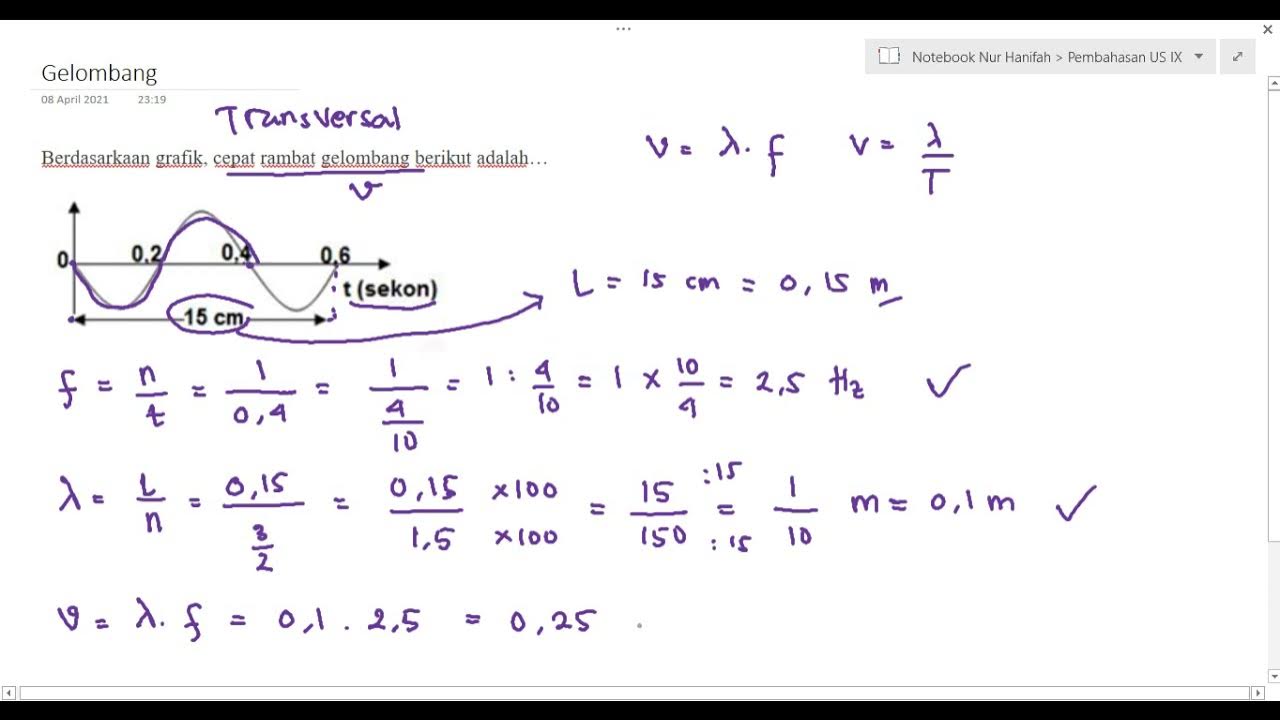 Notebook Nur Hanifah > Pembahasan US IX
Gelombang
08 April 2021 23:19
Transversal
Berdasarkaan grafik, cepat rambat gelombang berikut adalah…
v
v = λ . f v = λ/T
0 0,2 0,4 0,6
t (sekon)
15 cm
L = 15 cm = 0,15 m
f = n/t = 1/0,4 = 1/(4/10) = 1 : 4/10 = 1 × 10/4 = 2,5 Hz ✓
λ = L/n = 0,15/(3/2) = 0,15/1,5 ×100/×100 = 15/150 :15/:15 = 1/10 m = 0,1 m ✓
v = λ . f = 0,1 . 2,5 = 0,25